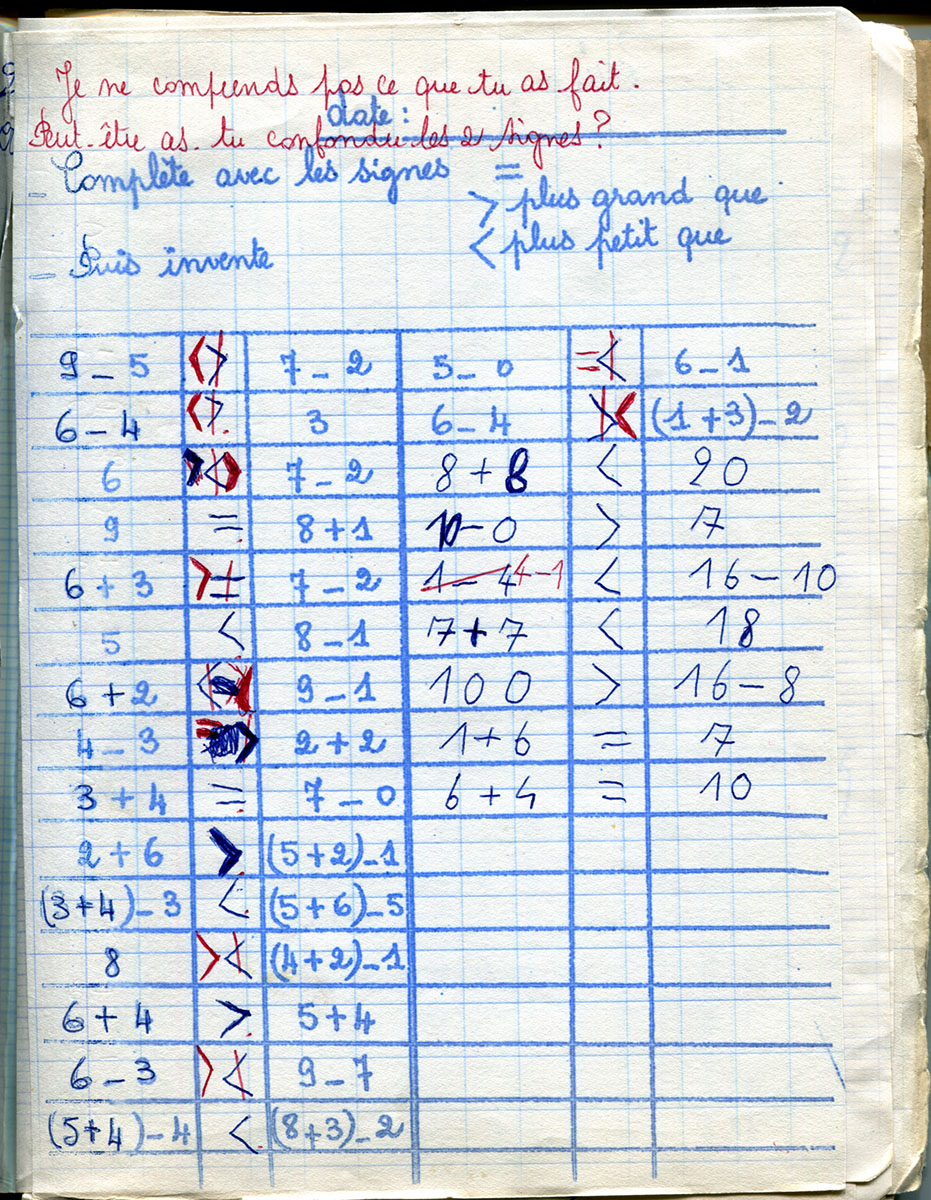 Je ne comprends pas ce que tu as fait.
date:
Peut-être as-tu confondu les 2 signes?
- Complète avec les signes =
> plus grand que
< plus petit que
- Puis invente
9 - 5 < > 7 - 2 5 - 0 = < 6 - 1
6 - 4 < > 3 6 - 4 > < (1 + 3) - 2
6 > < > 7 - 2 8 + 8 < 20
9 = 8 + 1 10 - 0 > 7
6 + 3 > = 7 - 2 1 - 4 4 - 1 < 16 - 10
5 < 8 - 1 7 + 7 < 18
6 + 2 < 9 - 1 100 > 16 - 8
4 - 3 > 2 + 2 1 + 6 = 7
3 + 4 = 7 - 0 6 + 4 = 10
2 + 6 > (5 + 2) - 1
(3 + 4) - 3 < (5 + 6) - 5
8 > < (4 + 2) - 1
6 + 4 > 5 + 4
6 - 3 > < 9 - 7
(5 + 4) - 4 < (8 + 3) - 2